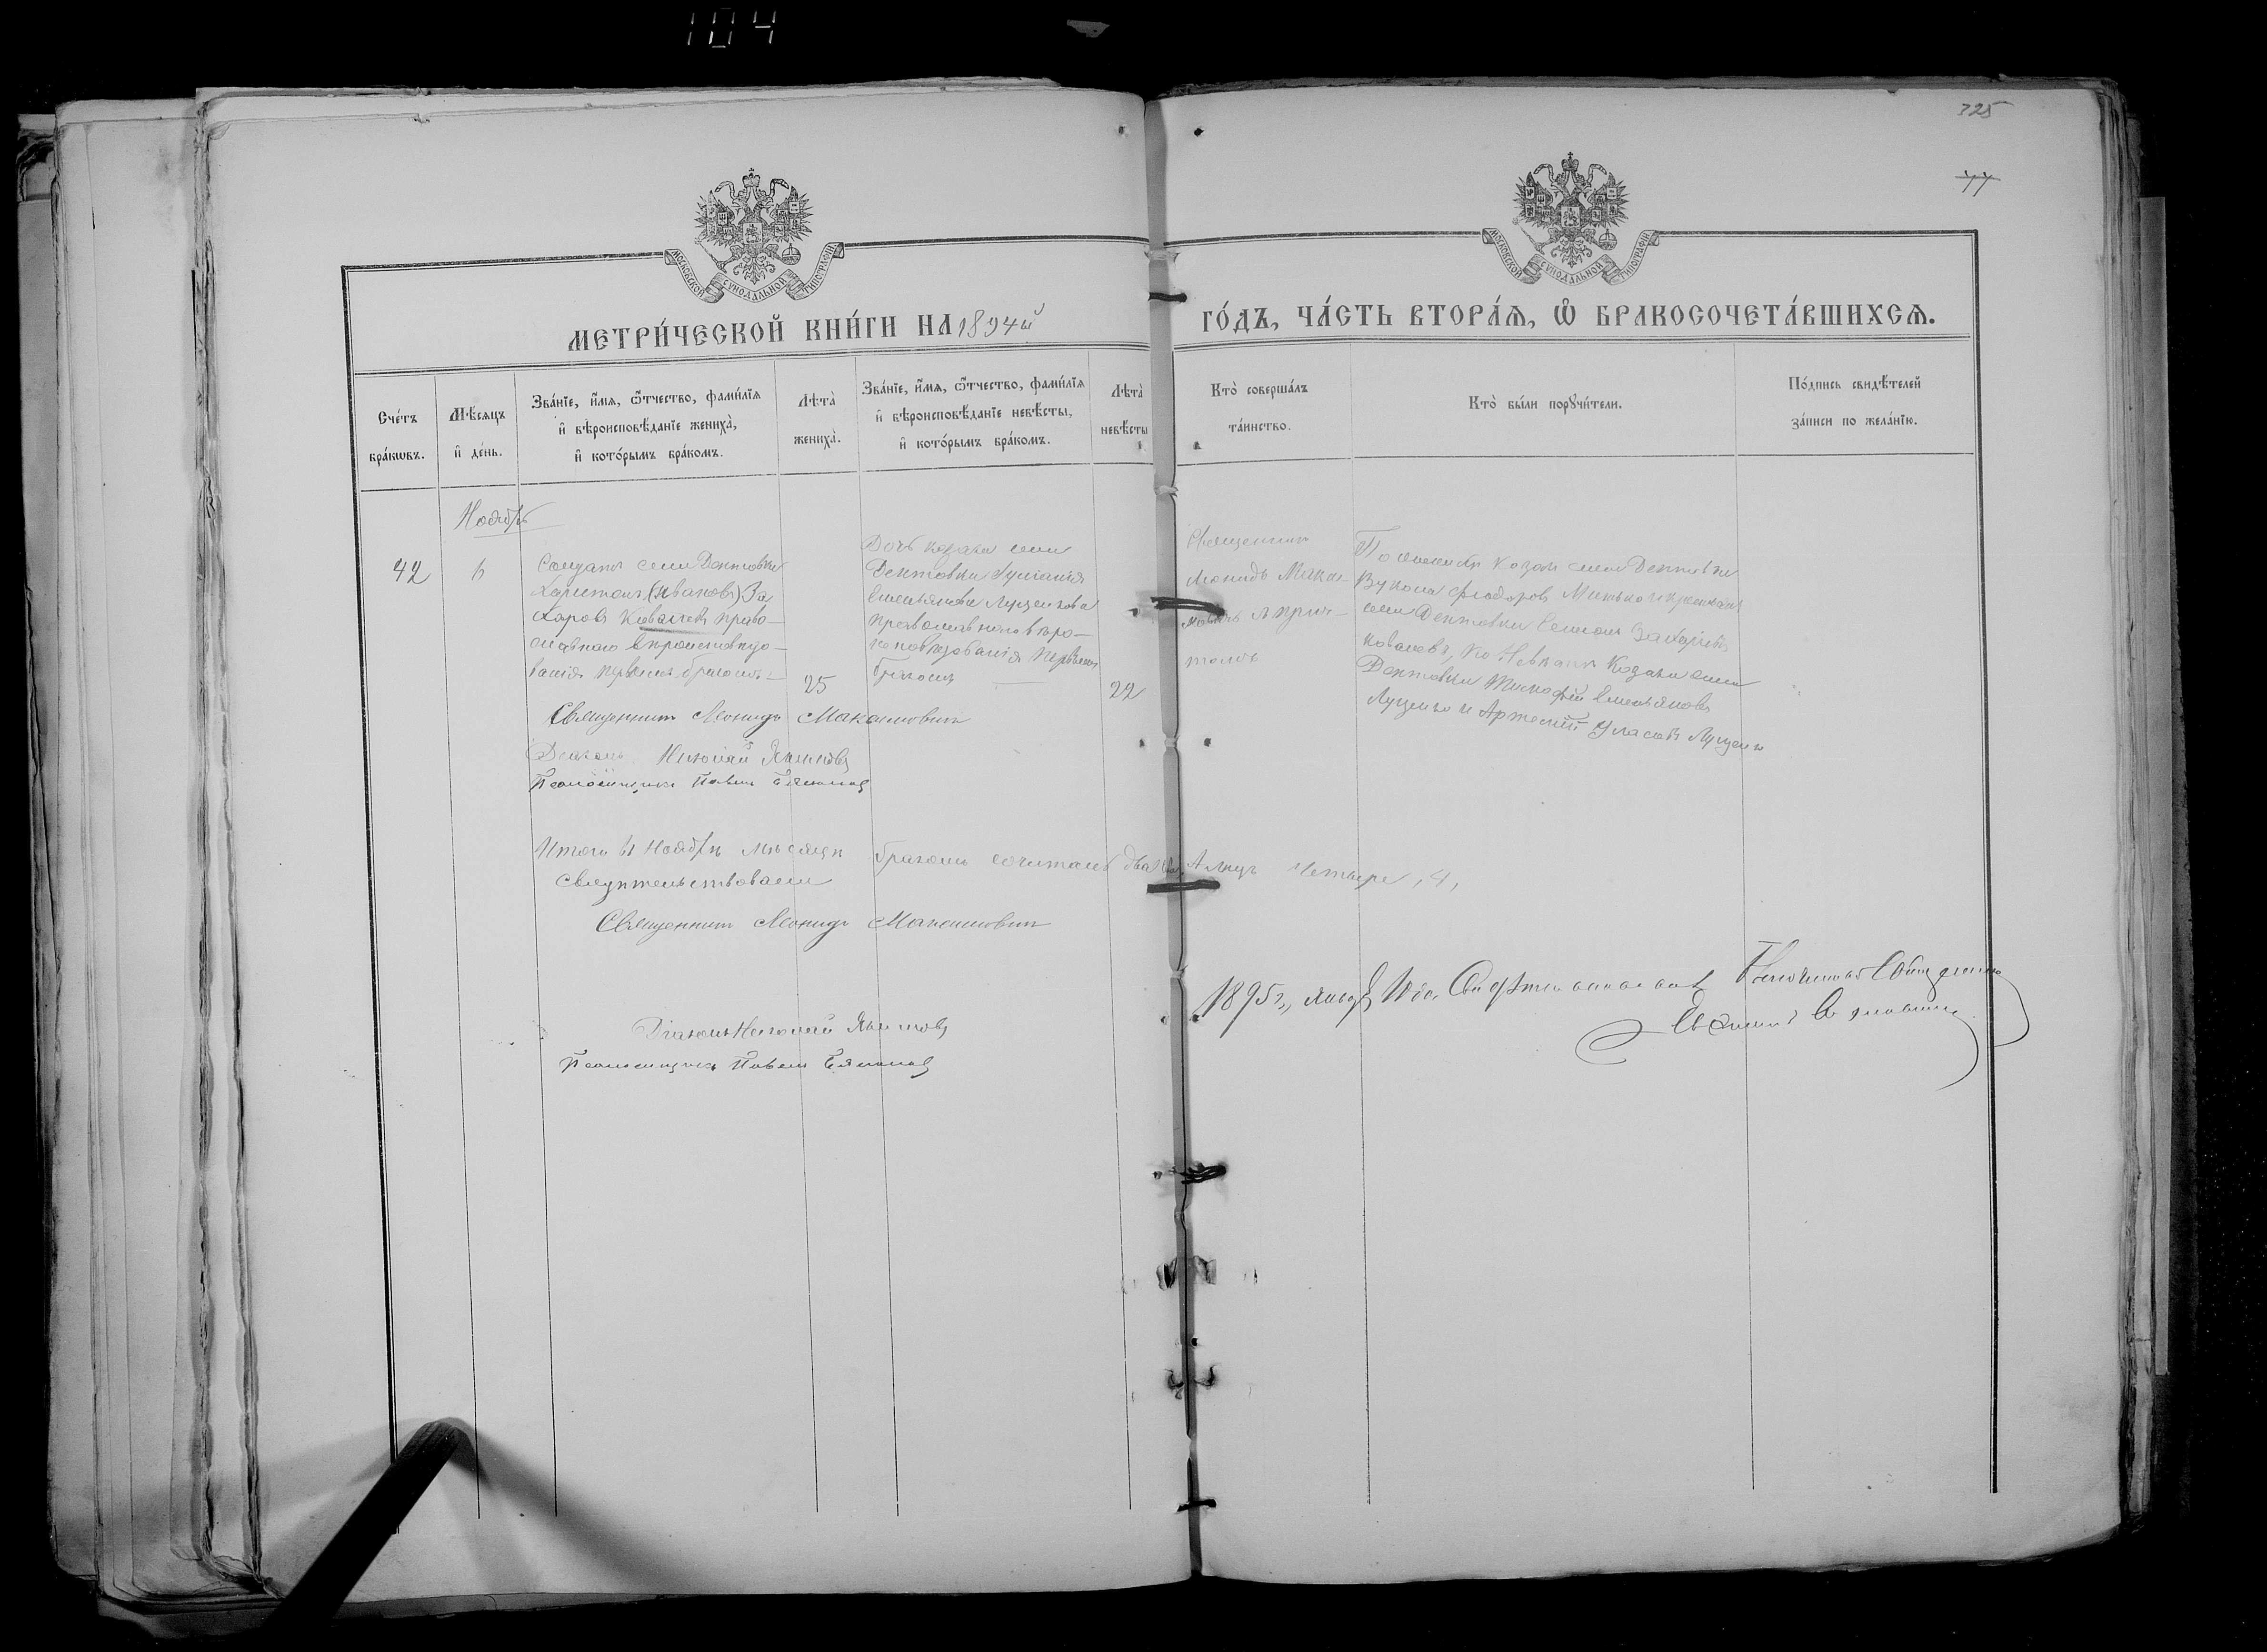 104
325
77
МОСКОВСКОЙ СУНОДАЛЬНОЙ ТИПОГРАФІИ
МОСКОВСКОЙ СУНОДАЛЬНОЙ ТИПОГРАФІИ
МЕТРИ́ЧЕСКОЙ КНИ́ГИ НА 1894й
ГО́ДЪ, ЧА́СТЬ ВТОРА́Ѧ, Ѽ БРАКОСОЧЕТА́ВШИХСѦ.
Сче́тъ бра́кѡвъ.
Мѣ́сѧцъ и҆ де́нь.
Зва́нїе, и҆́мѧ, ѻ҆́тчество, фами́лїѧ
и҆ вѣроисповѣ́данїе жениха̀,
и҆ кото́рымъ бра́комъ.
Лѣта̀ жениха̀.
Зва́нїе, и҆́мѧ, ѻ҆́тчество, фами́лїѧ
и҆ вѣроисповѣ́данїе невѣ́сты,
и҆ кото́рымъ бра́комъ.
Лѣта̀ невѣ́сты
Кто̀ соверша́лъ та́инство.
Кто̀ бы́ли порꙋчи́тели.
По́дпись свидѣ́телей
за́писи по жела́нїю.
Ноябрь
42
6
Солдатъ села Дептовки
Харитонъ (Ивановъ) За
харовъ Ковалевъ право-
славнаго вѣроисповѣдо-
ванія первымъ бракомъ
25
Дочь козака села
Дептовки
Емельянова Луценкова
православного вѣро-
исповѣдованія первымъ
бракомъ
22
Священникъ
Леонидъ Макси-
мовичъ с прич-
томъ
По женихѣ козак села Дептовки
Вукола Феодоровъ Минько и крестьянинъ
села Дептовки Захаріевъ
Ковалевъ, по Невѣстѣ Козаки села
Дептовки Тимофей Емельяновъ
Луценко и Артемій Власовъ Луценко
Священникъ Леонидъ Максимовичъ
Діаконъ Николай
Псаломщикъ Павелъ
Итого въ Ноябрѣ мѣсяцѣ бракомъ сочитано два, А лицъ Четыре, 4,
Свидѣтельствовали
Священникъ Леонидъ Максимовичъ
Діаконъ Николай
Псаломщикъ Павелъ
1895 г., Января Свидѣтельствовалъ Благочинный Священникъ